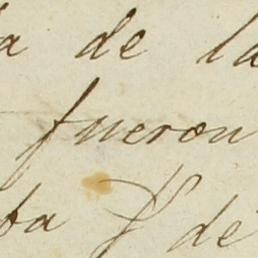 a de la
fueron
ta de